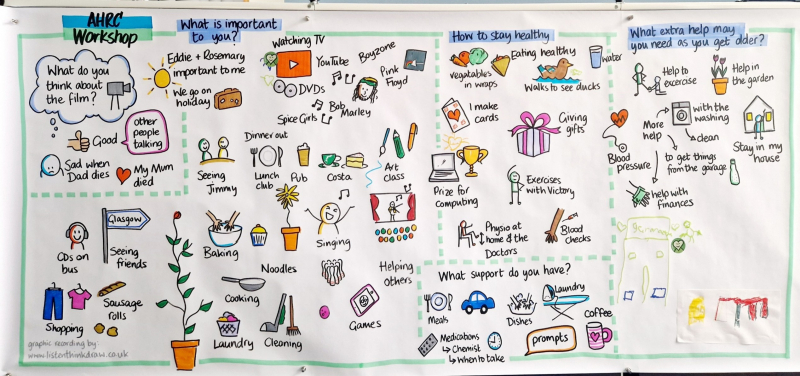 AHRC
Workshop
What do you
think about
the film?
Good
other
people
talking
Sad when
Dad dies
My Mum
died
What is important
to you?
Eddie + Rosemary
important to me
We go on
holiday
Watching TV
YouTube
DVDs
Boyzone
Pink
Floyd
Bob
Marley
Spice Girls
Seeing
Jimmy
Dinner out
Lunch
club
Pub
Costa
Art
class
Glasgow
CDs on
bus
Seeing
friends
Shopping
Sausage
rolls
Baking
Singing
Noodles
Cooking
Helping
others
Laundry
Cleaning
Games
graphic recording by:
www.listenthinkdraw.co.uk
How to stay healthy
Vegetables
in wraps
Eating healthy
water
Walks to see ducks
I make
cards
Giving
gifts
Prize for
computing
Exercises
with Victory
Physio at
home & the
Doctors
Blood
checks
What support do you have?
Meals
Dishes
Laundry
Medications
Chemist
When to take
prompts
Coffee
What extra help may
you need as you get older?
Help to
excercise
Help in
the garden
More
help
with the
washing
clean
Stay in my
house
Blood
pressure
to get things
from the garage
help with
finances